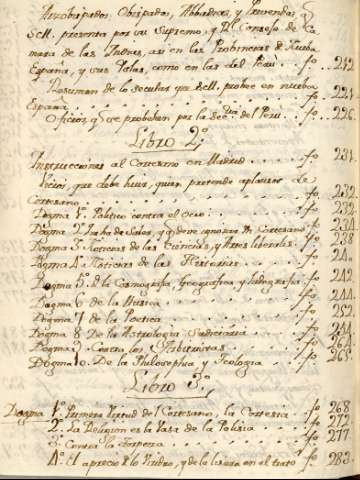 Arzobispados, Obispados, Abbadias, y Prevendas, q̃
S.M. presenta por su Supremo, y Rl. Consejo de Ca-
mara de las Indias, asi en las Provincias de Nueba
España, y sus Islas, como en las del Perù . . fo. 212.
Resumen de lo secular que S.M. probee en nueba
España . . . fo. 221.
Oficios q̃ se probehen por la secria. del Perù . . fo. 226.
Libro 2º.
Instrucciones al Cortesano en Madrid . . . fo. 231.
Vicios, que debe huir, quien pretende aplausos de
Cortesano . . . fo. 232.
Dogma 1º. Politico contra el Ocio . . . fo.
Dogma 2º. de Saber, y q̃ debe ignorar Un Cortesano fo. 234.
Dogma 3º. Noticias de las Ciencias, y Artes liberales . fo. 238.
Dogma 4º. Noticias de las Historias . . . fo.
Dogma 5º. de la Cosmografia, Geografica y hidrografia . fo. 242.
Dogma 6º de la Musica . . . fo. 244.
Dogma 7º de la Poetica . . . fo. 252.
Dogma 8º De la Astrologia Judiciaria . . . fo.
Dogma 9º. Contra los Arbitristas . . . fo. 264.
Dogma 10. De la Philosophia y Teologia . . . fo. 265.
Libro 3º.
Dogma 1º. Primera Virtud del Cortesano, la Cortesia . fo. 268.
2º. La Religion es la Vasa de la Policia . . . fo. 272.
3º. Contra la Torpeza . . . fo. 277.
4º. El aprecio de lo y de la lisura en el trato fo. 283.